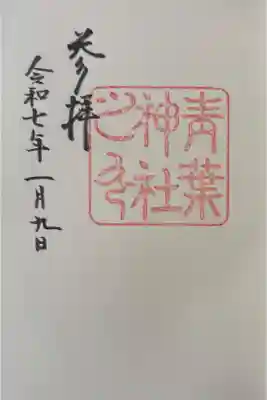 参拝
青葉
神社
之印
令和七年一月九日